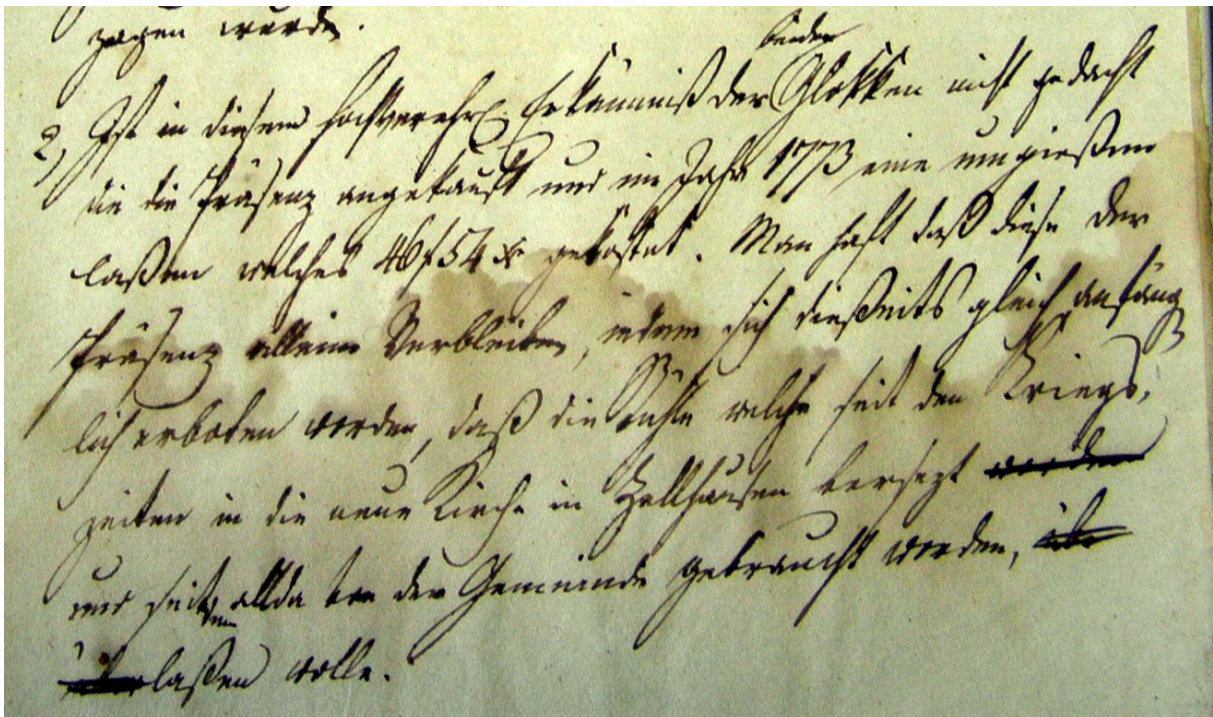 zogen wurde.
2, Ist in diesem hochverehrl. Erkänntniß der beiden Glokken nicht gedacht
die die Präsenz angekauft und im Jahr 1773 eine umgießen
laßen welches 46 f 54 xr gekostet. Man hoft daß diese der
Präsenz allein Verbleiben, indem sich dießeits gleich anfäng
lich erboten worden, daß die Stühle welche seit den Kriegs,
zeiten in die neue Kirche in Zellhausen versezt worden
und seitdem allda von der Gemeinde gebraucht worden,
laßen wolle.